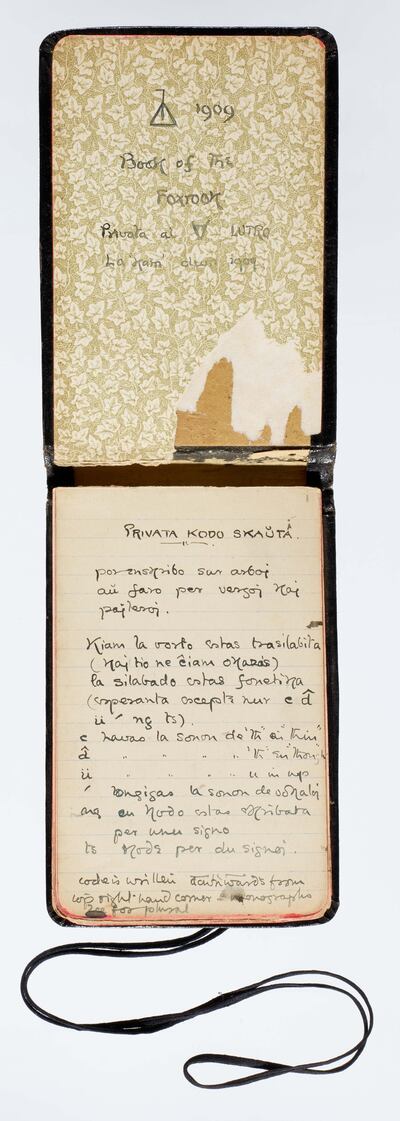 1909
Book of the
Foxrook
Privata al LUTRO
La 1909
PRIVATA KODO SKAŬTA.
por enskribo sur arboj
aŭ faro per vergoj kaj
pajleroj.
Kiam la vorto estas trasilabita
(kaj tio ne ĉiam okazas)
la silabado estas fonetika
(esperanta escepte nur c d̂
ü ´ ng ts).
c havas la sonon de "th" en "thin"
d̂ " " " " "th" en "though
ü " " " " u in up
´ longigas la sonon de vokaloj
ang en kodo estas skribata
per unu signo
ts kode per du signoj.
code is written downwards from
top right-hand corner monographs
for plural